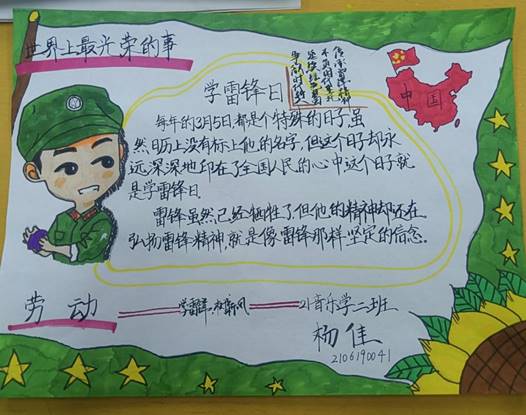 世界上最光荣的事
学雷锋日
中国
每年的3月5日,都是个特殊的日子虽
然日历上没有标上他的名字,但这个日子却永
远深深地印在了全国人民的心中这个日子就
是学雷锋日.
雷锋虽然已经牺牲了但他的精神却还在
弘扬雷锋精神,就是像雷锋那样坚定的信念.
劳动
学雷锋.树新风
21音乐学二班
杨佳
2106190041